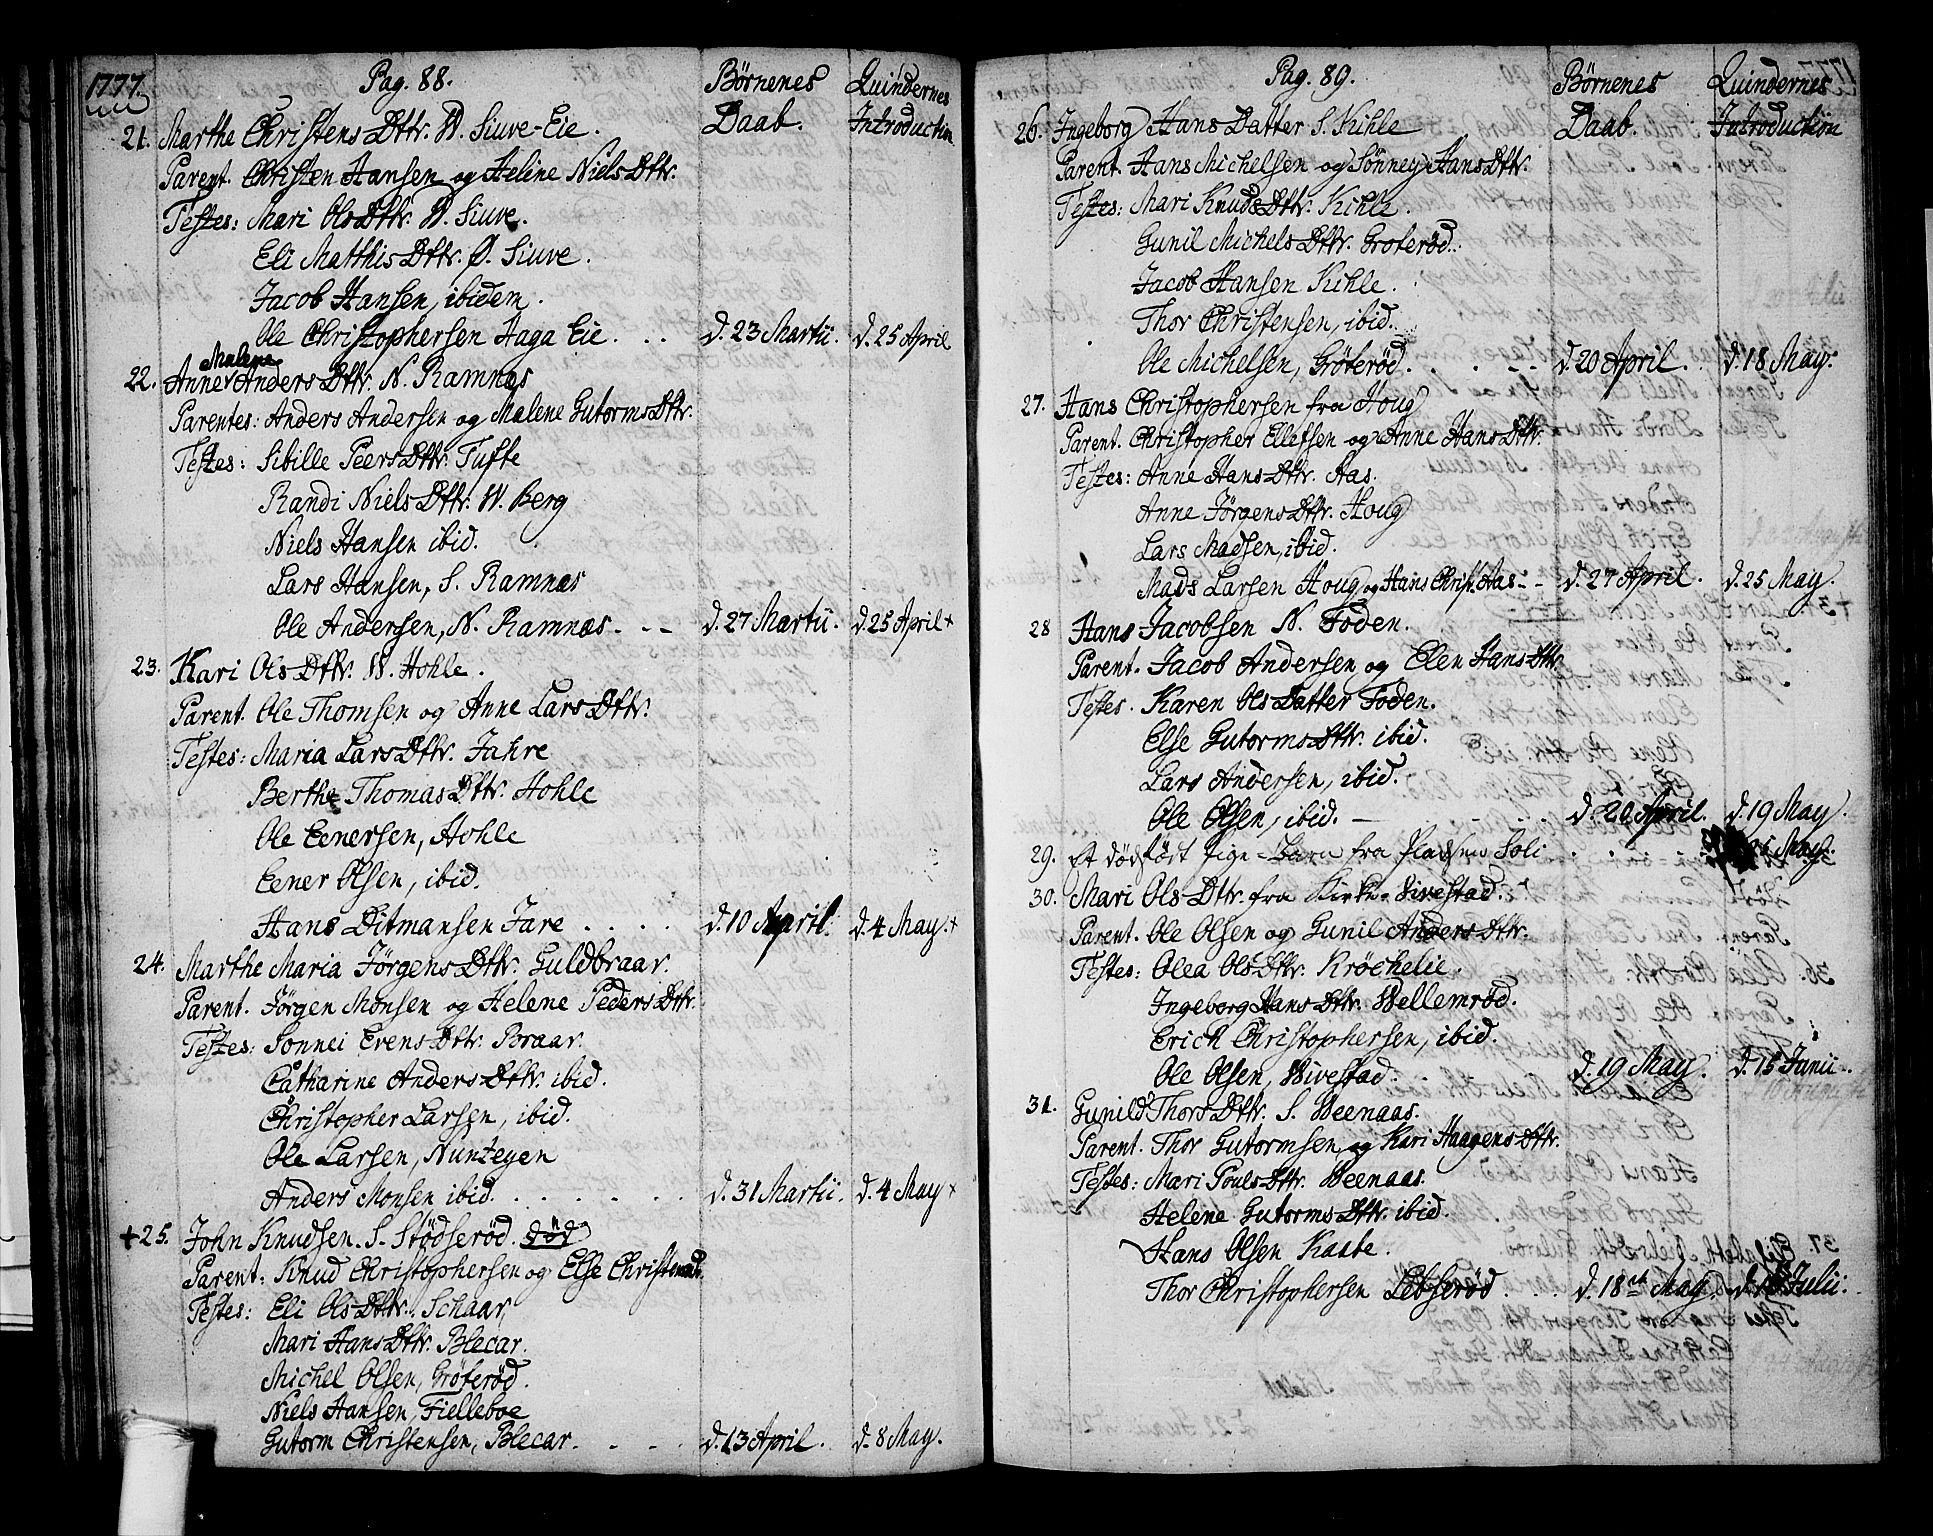 1777.
Pag. 88.
Børnenes Daab.
Quindernes Introduction
21. Marthe Christens Dttr. W. Siuve-Eie.
Parent. Christen Hansen og Heline Niels Dttr.
Testes: Mari Ols Dttr. W. Siuve.
Eli Matthis Dttr. Ø. Siuve.
Jacob Hansen, ibidem.
Ole Christophersen Haga Eie . . . d. 23 Martii. d. 25 April
Malene
22. Anne Anders Dttr. N. Ramnæs
Parentes: Anders Andersen og Malene Gutorms Dttr.
Testes: Sibille Peers Dttr. Tufte
Randi Niels Dttr. W. Berg
Niels Hansen ibid.
Lars Hansen, S. Ramnæs
Ole Andersen, N. Ramnæs. - - d. 27 Martii. d. 25 April +
23. Kari Ols Dttr. W. Hohle.
Parent. Ole Thomsen og Anne Lars Dttr.
Testes: Maria Lars Dttr. Jahre
Berthe Thomas Dttr. Hohle
Ole Eenersen, Hohle
Eener Olsen, ibid.
Hans Ditmansen Jare . . . . d. 10 April. d. 4 May. +
24. Marthe Maria Jörgens Dttr. Guldbraar.
Parent. Jörgen Monsen og Helene Peders Dttr.
Testes: Sonnei Evens Dttr. Braar.
Catharine Anders Dttr. ibid.
Christopher Larsen, ibid.
Ole Larsen, Nuntegen
Anders Monsen ibid. . . . . . . d. 31 Martii. d. 4 May +
+ 25. John Knudsen. S. Stödseröd. död
Parent: Knud Christophersen og Else Christensd.
Testes: Eli Ols Dttr. Schaar,
Mari Hans Dttr. Blecar.
Michel Olsen, Gröteröd.
Niels Hansen, Fielleboe
Gutorm Christensen, Blecar. - - - d. 13 April. d. 8 May.
Pag. 89.
Börnenes Daab.
Quindernes Introduction
26. Ingeborg Hans Datter S. Kihle
Parent. Hans Michelsen og Sönney Hans Dttr.
Testes: Mari Knuds Dttr. Kihle.
Gunil Michels Dttr. Groteröd.
Jacob Hansen Kihle.
Thor Christensen, ibid.
Ole Michelsen, Gröteröd. . . . - - d. 20 April. d. 18 May.
27. Hans Christophersen fra Houg
Parent. Christopher Ellefsen og Anne Hans Dttr.
Testes: Anne Hans Dttr. Aas.
Anne Jörgens Dttr. Houg
Lars Madsen, ibid.
Mads Larsen Houg og Hans Christ. Aas - - d. 27 April. d. 25 May.
28 Hans Jacobsen N. Foden.
Parent. Jacob Andersen og Elen Hans Dttr.
Testes. Karen Ols Datter Foden.
Else Gutorms Dttr. ibid.
Lars Andersen, ibid.
Ole Olsen, ibid. — - - - d. 20 April. d. 19 May.
29. Et dödfödt Pige-Barn fra Pladsen Soli . . . . May.
30. Mari Ols Dttr. fra Kirke-Vivestad.
Parent. Ole Olsen og Gunil Anders Dttr.
Testes: Olea Ols Dttr. Kröchelie.
Ingeborg Hans Dttr. Wellemröd.
Erich Christophersen, ibid.
Ole Olsen, Wivestad. . . . d. 19 May. d. 15 Junii.
31. Gunild Thors Dttr. S. Weenaas.
Parent. Thor Gutormsen og Kari Haagens Dttr.
Testes: Mari Pouls Dttr. Weenaas.
Helene Gutorms Dttr. ibid.
Hans Olsen Kaabe.
Thor Christophersen Lebseröd . . . d. 18 May. Julii.